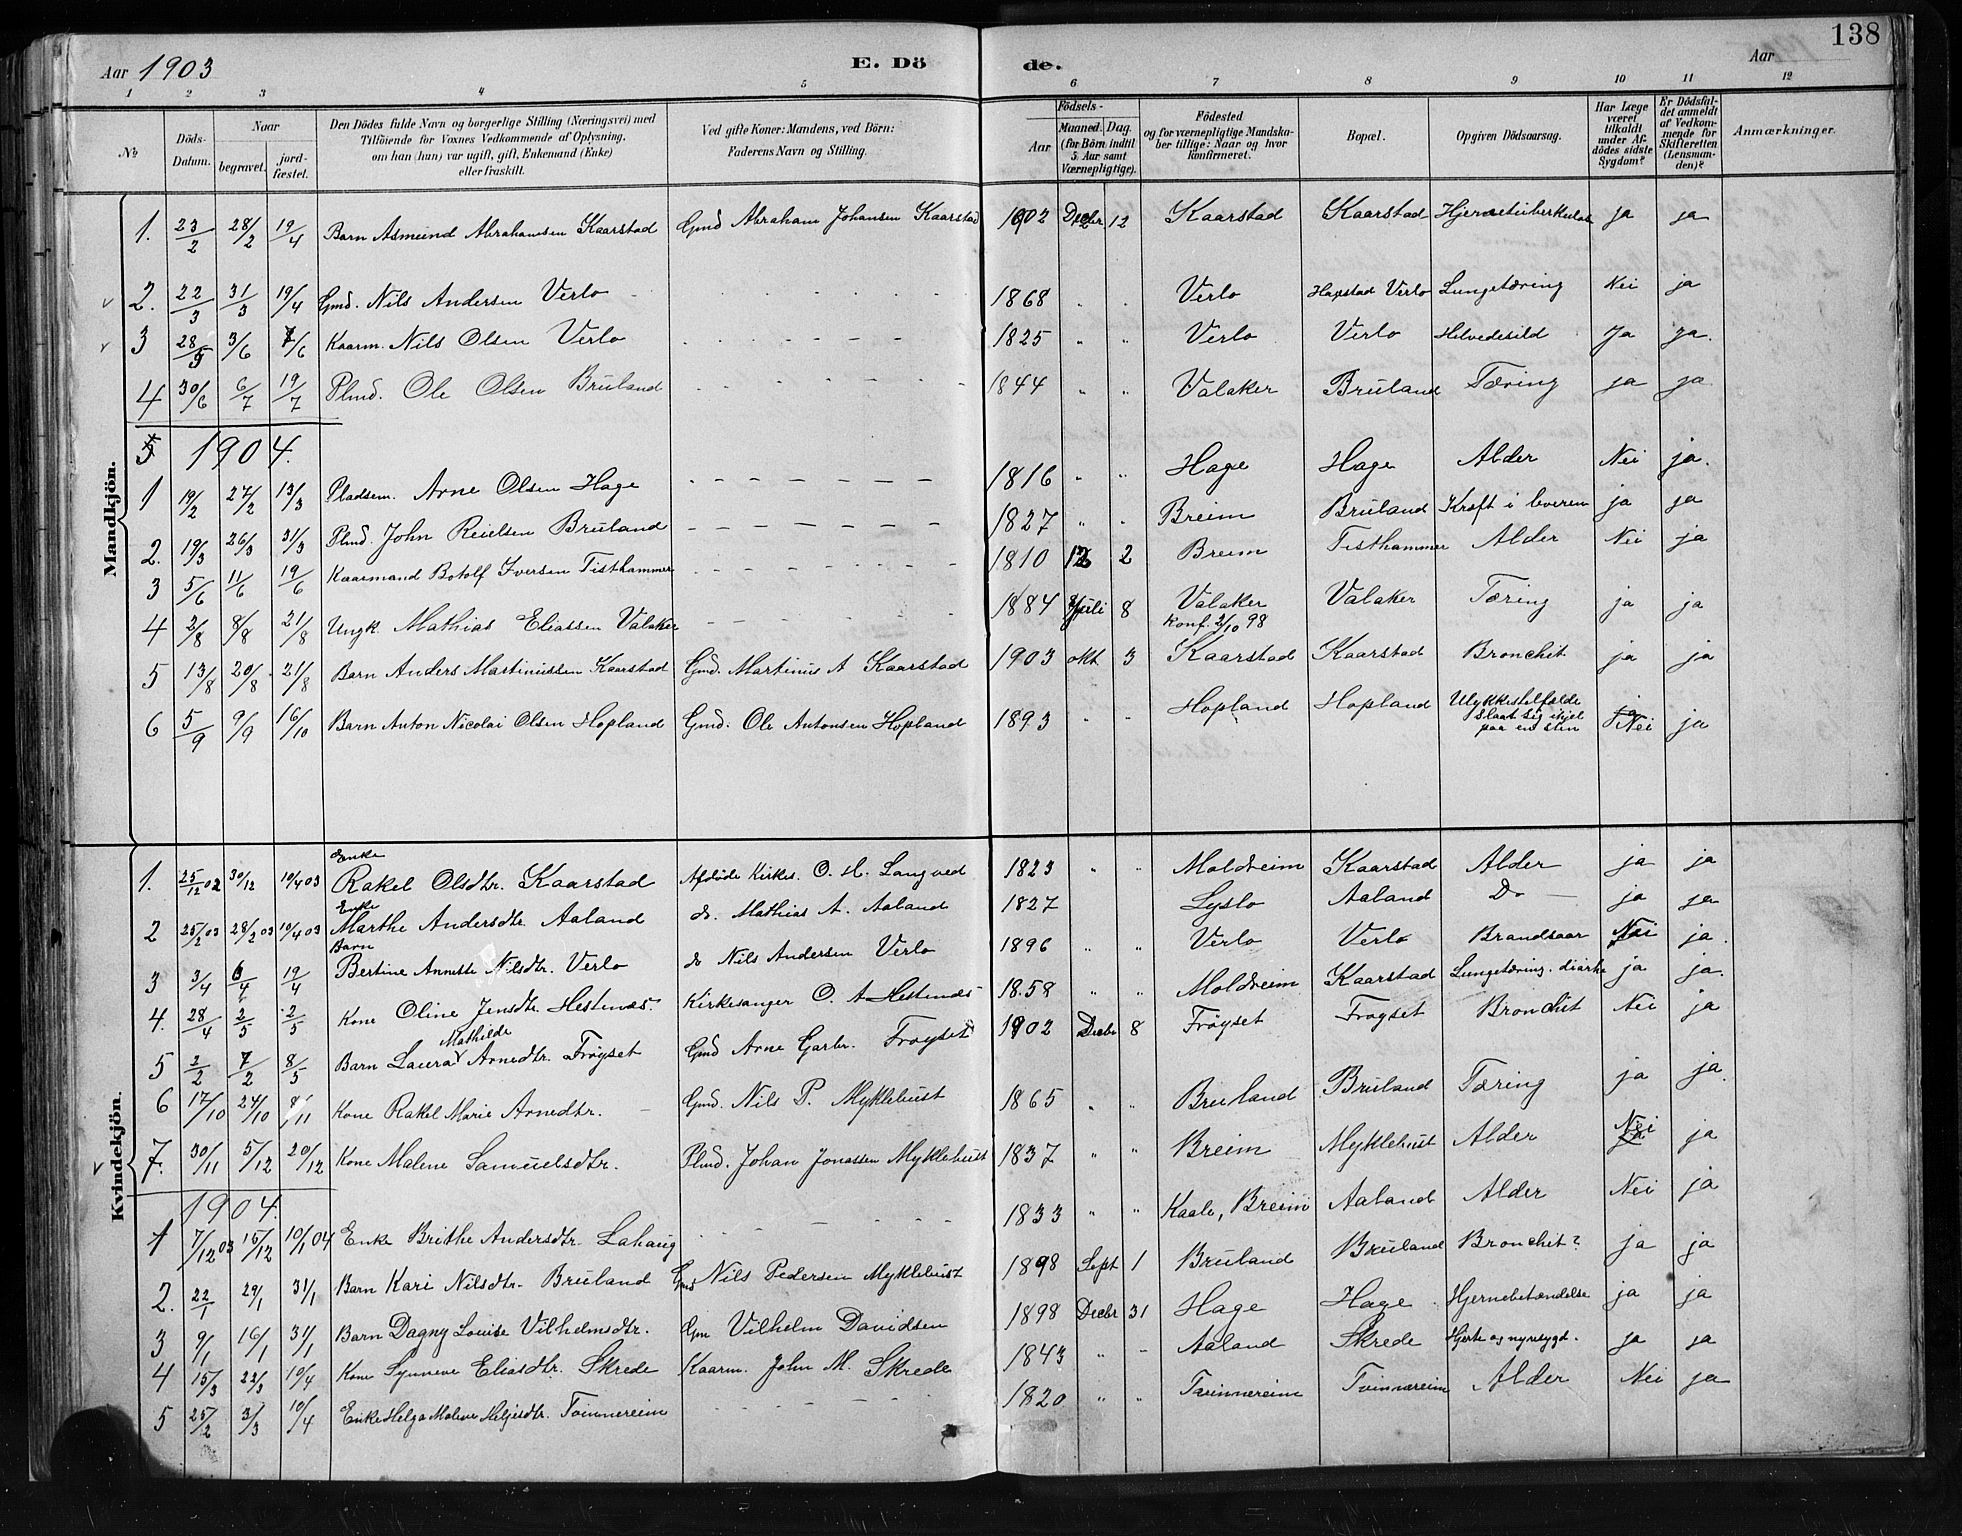 138
Aar 1903 E. Dö de. Aar
1 2 3 4 5 6 7 8 9 10 11 12
№ Döds-Datum. Naar begravet. jord-fæstet. Den Dödes fulde Navn og borgerlige Stilling (Næringsvei) med Tilföiende for Voxnes Vedkommende af Oplysning, om han (hun) var ugift, gift, Enkemand (Enke) eller fraskilt. Ved gifte Koner: Mandens, ved Börn: Faderens Navn og Stilling. Födsels- Aar Maaned. Dag. (for Börn indtil 5. Aar samt Værnepligtige). Födested og for værnepligtige Mandskaber tillige: Naar og hvor konfirmeret. Bopæl. Opgiven Dödsaarsag. Har Læge været tilkaldt under Afdödes sidste Sygdom? Er Dödsfaldet anmeldt af Vedkommende for Skifteretten (Lensmanden)? Anmærkninger.
Mandkjön.
1. 23/2 28/2 19/4 Barn Asmund Abrahamsen Kaarstad Gmd Abraham Johansen Kaarstad 1902 Decbr 12 Kaarstad Kaarstad Hjernetuberkulos ja ja
2. 22/3 31/3 19/4 Gmd. Nils Andersen Verlo 1868 " " Verlo Hopstad Verlo Lungetæring Nei ja
3 28/5 3/6 7/6 Kaarm. Nils Olsen Verlo 1825 " " Verlo Verlo Helvedesild Ja ja.
4 30/6 6/7 19/7 Plmd. Ole Olsen Bruland 1844 " " Valaker Bruland Tæring ja ja
5 1904.
1 19/2 27/2 13/3 Pladsem. Arne Olsen Hage 1816 " " Hage Hage Alder Nei ja.
2. 19/3 26/3 31/3 Plmd. John Reielsen Bruland 1827 " " Breim Bruland Kræft i leveren ja ja
3 5/6 11/6 19/6 Kaarmand Botolf Iversen Tisthammer 1810 12 2 Breim Tisthammer Alder Nei ja
4 2/8 8/8 21/8 Ungk. Mathias Eliassen Valaker 1884 Juli 8 Valaker Konf. 2/10 98 Valaker Tæring ja ja
5 13/8 20/8 21/8 Barn Anders Martinussen Kaarstad Gmd. Martinus A Kaarstad 1903 okt 3 Kaarstad Kaarstad Bronchit ja ja
6 5/9 9/9 16/10 Barn Anton Nicolai Olsen Hopland Gmd. Ole Antonsen Hopland 1893 " " Hopland Hopland Ulykkestilfælde slaat sig ihjel paa en sten Nei ja
Kvindekjön.
1. 25/12 02 30/12 10/4 03 Enke Rakel Olsdtr. Kaarstad Afdöde Kirkes. O. H. Langved 1823 " " Moldreim Kaarstad Alder ja ja
2 25/2 03 28/2 03 10/4 03 Enke Marthe Andersdtr. Aaland do. Mathias A. Aaland 1827 Lyslo Aaland Do — ja ja
3 3/4 6/4 19/4 Barn Bertine Annette Nilsdtr. Verlo do Nils Andersen Verlo 1896 " " Verlo Verlo Brandsaar Nei ja.
4. 28/4 2/5 2/5 Kone Oline Jensdtr. Hestenæs. Kirkesanger O. A Hestenæs 1858 " " Moldreim Kaarstad Lungetæring. diarhe ja ja.
5 2/2 7/2 8/5 Barn Laura Mathilde Arnedtr. Fröyset Gmd Arne Garbr. Fröyset 1902 Decbr 8 Fröyset Fröyset Bronchit Nei ja
6 17/10 24/10 8/11 Kone Rakel Marie Arnedtr. Gmd. Nils P. Myklebust 1865 " " Bruland Bruland Tæring ja ja.
7. 30/11 5/12 20/12 Kone Malene Samuelsdtr. Plmd. Johan Jonassen Myklebust 1837 " " Breim Myklebust Alder Nei ja
1904.
1 7/12 03 15/12 10/1 04 Enke Brithe Andersdtr. Lahaug 1833 " " Kaale, Breim Aaland Alder Nei ja
2. 22/1 29/1 31/1 Barn Kari Nilsdtr. Bruland Gmd Nils Pedersen Myklebust 1898 Sept 1 Bruland Bruland Bronchit? ja ja
3 9/1 16/1 31/1 Barn Dagny Louise Vilhelmsdtr. Gm Vilhelm Davidsen 1898 Decbr 31 Hage Hage Hjernebetændelse ja ja
4 15/3 22/3 10/4 Kone Synneve Eliasdtr. Skrede Kaarm. John M. Skrede 1843 " " Aaland Skrede Hjerte og nyresygd. ja ja
5 25/2 3/3 10/4 Enke Helga Malene Heljesdtr. Tvinnereim 1820 " " Tvinnereim Tvinnereim Alder Nei ja